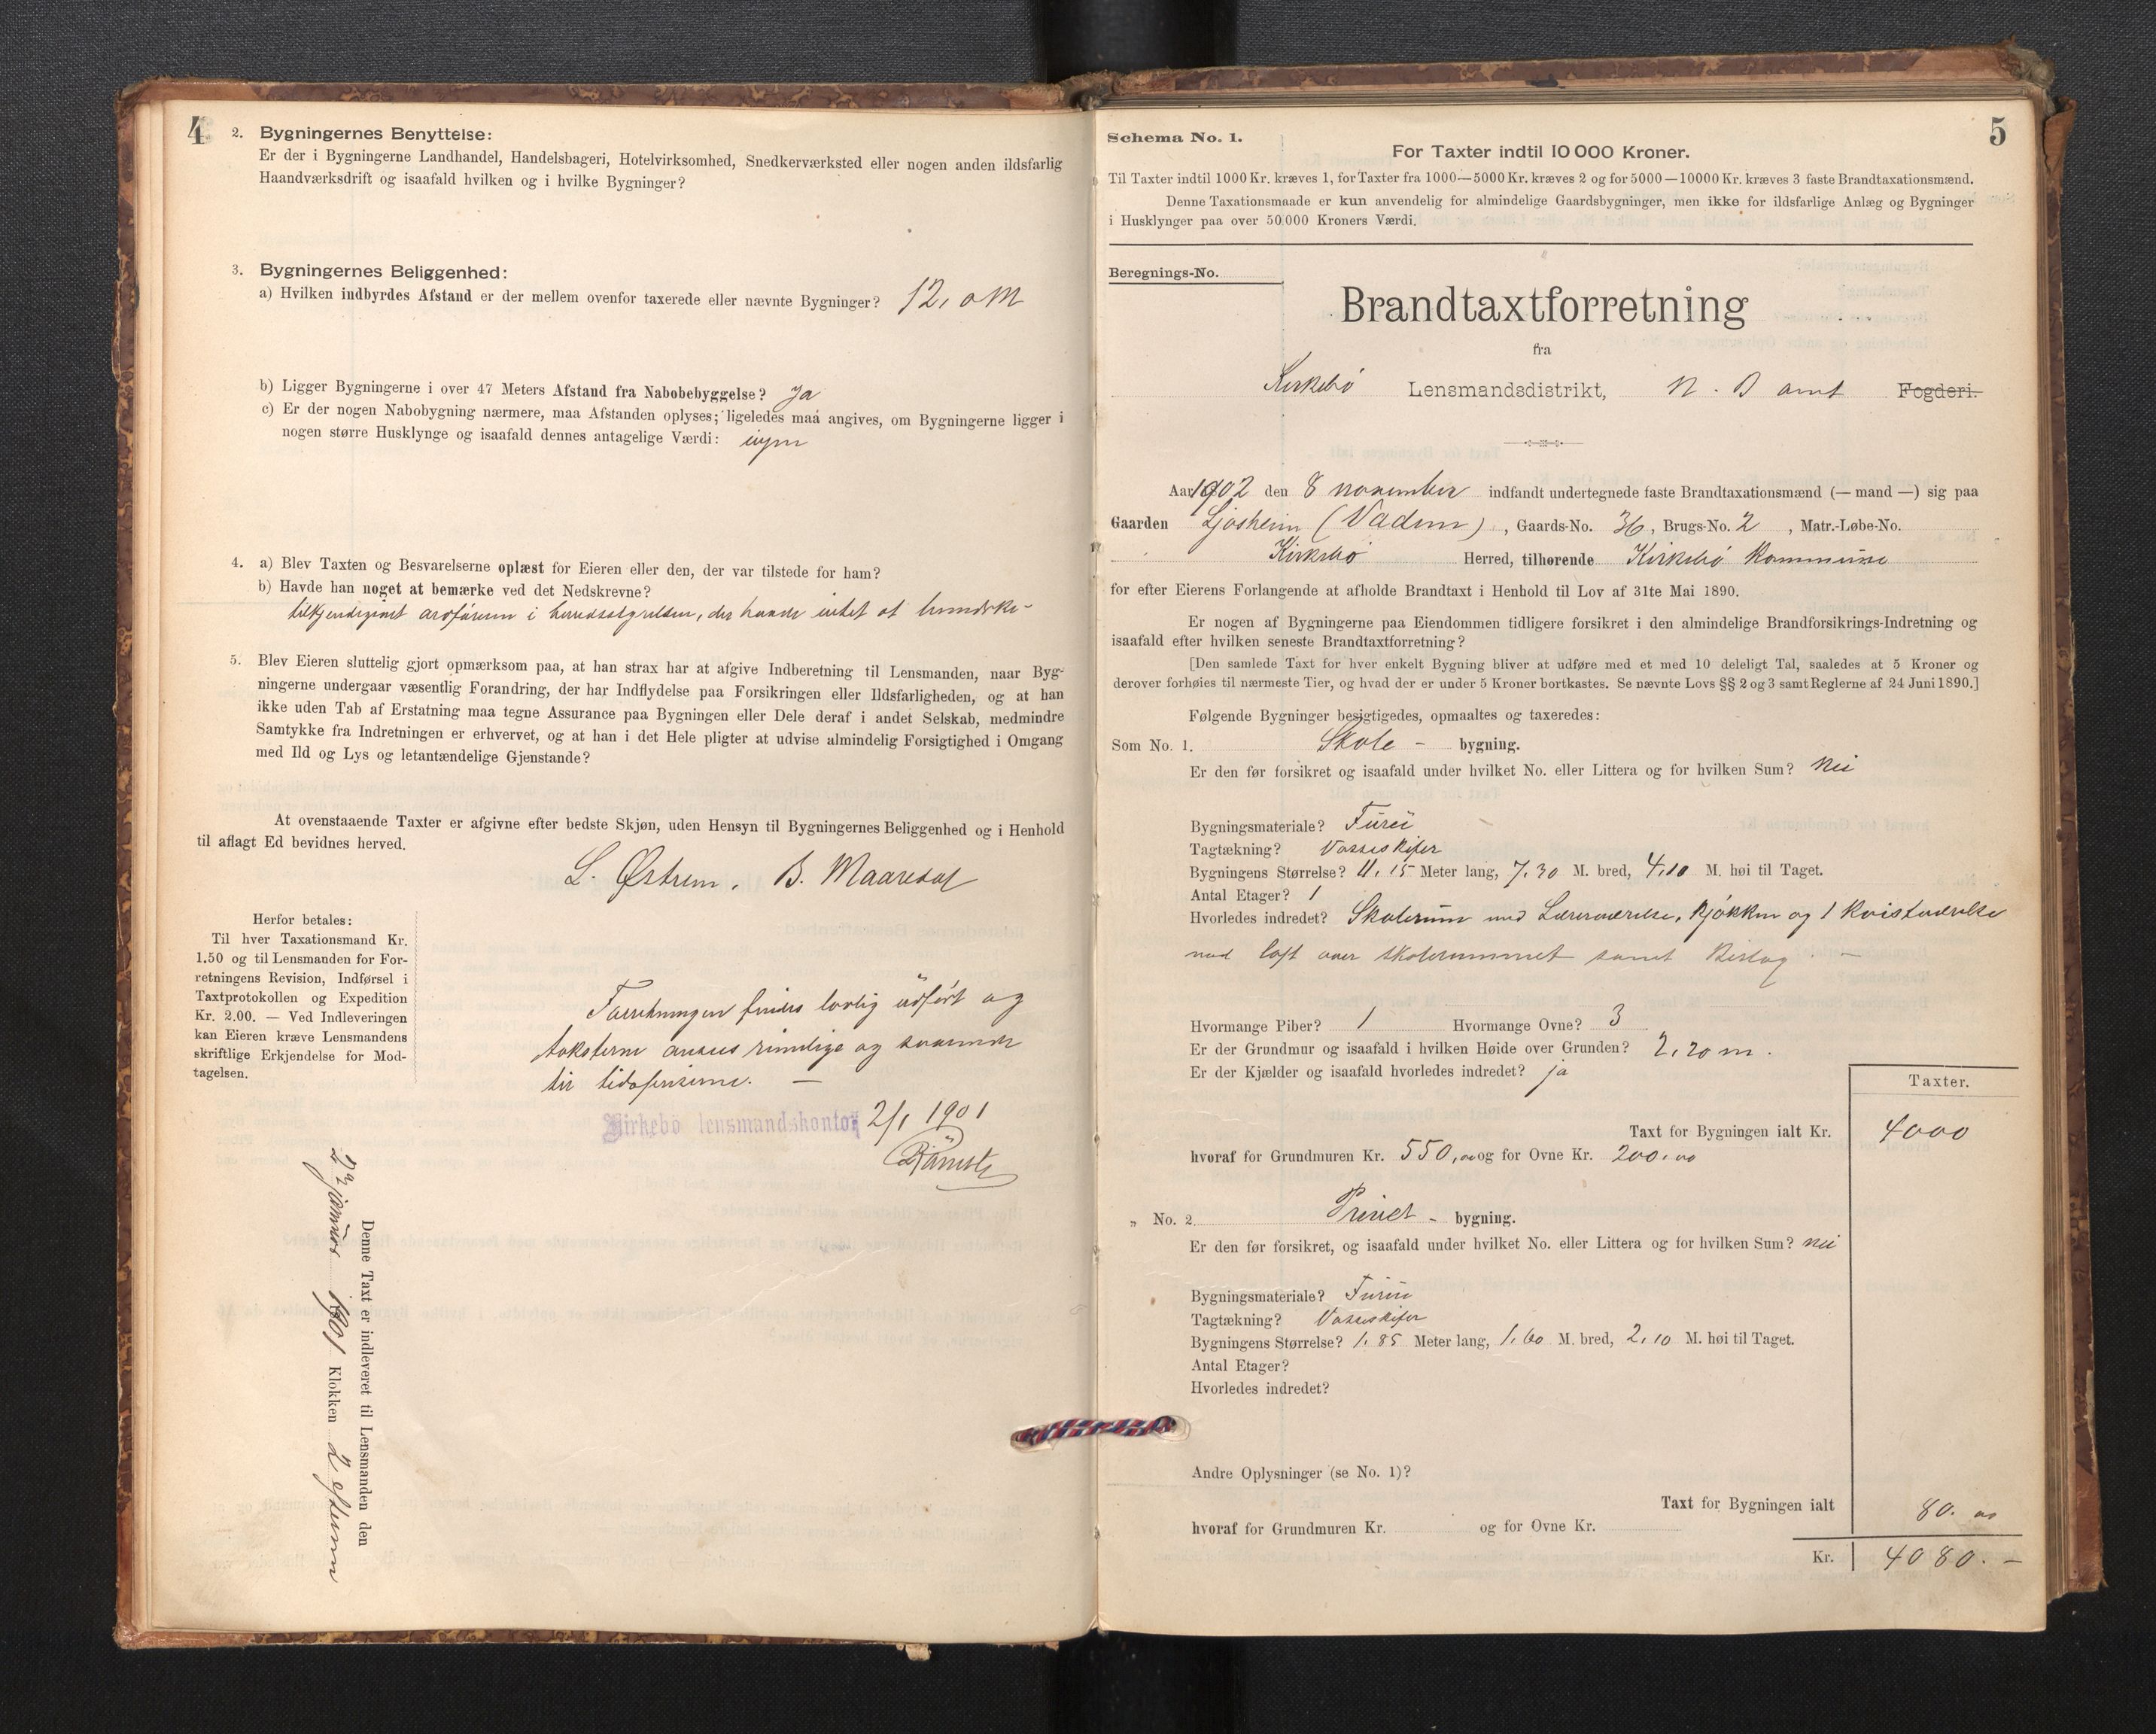 4
2. Bygningernes Benyttelse:
Er der i Bygningerne Landhandel, Handelsbageri, Hotelvirksomhed, Snedkerværksted eller nogen anden ildsfarlig
Haandværksdrift og isaafald hvilken og i hvilke Bygninger?
3. Bygningernes Beliggenhed:
a) Hvilken indbyrdes Afstand er der mellem ovenfor taxerede eller nævnte Bygninger? 12,0 M
b) Ligger Bygningerne i over 47 Meters Afstand fra Nabobebyggelse? Ja
c) Er der nogen Nabobygning nærmere, maa Afstanden oplyses; ligeledes maa angives, om Bygningerne ligger i
nogen større Husklynge og isaafald dennes antagelige Værdi: ingen
4. a) Blev Taxten og Besvarelserne oplæst for Eieren eller den, der var tilstede for ham?
b) Havde han noget at bemærke ved det Nedskrevne?
tilkjendegivet ordføreren i herredsstyrelsen, der havde intet at bemærke-
5. Blev Eieren sluttelig gjort opmærksom paa, at han strax har at afgive Indberetning til Lensmanden, naar Byg-
ningerne undergaar væsentlig Forandring, der har Indflydelse paa Forsikringen eller Ildsfarligheden, og at han
ikke uden Tab af Erstatning maa tegne Assurance paa Bygningen eller Dele deraf i andet Selskab, medmindre
Samtykke fra Indretningen er erhvervet, og at han i det Hele pligter at udvise almindelig Forsigtighed i Omgang
med Ild og Lys og letantændelige Gjenstande?
At ovenstaaende Taxter er afgivne efter bedste Skjøn, uden Hensyn til Bygningernes Beliggenhed og i Henhold
til aflagt Ed bevidnes herved.
L. Østrem. B. Maaredal
Herfor betales:
Til hver Taxationsmand Kr.
1.50 og til Lensmanden for For-
retningens Revision, Indførsel i
Taxtprotokollen og Expedition
Kr. 2.00. — Ved Indleveringen
kan Eieren kræve Lensmandens
skriftlige Erkjendelse for Mod-
tagelsen.
Forretningen findes lovlig udført og
taksterne ansees rimelige og svarende
til tidspriserne. —
Kirkebö lensmandskontor 2/1 1901
Denne Taxt er indleveret til Lensmanden den
2 januar 1901 Klokken 2 efterm
5
Schema No. 1.
For Taxter indtil 10 000 Kroner.
Til Taxter indtil 1000 Kr. kræves 1, for Taxter fra 1000—5000 Kr. kræves 2 og for 5000—10000 Kr. kræves 3 faste Brandtaxationsmænd.
Denne Taxationsmaade er kun anvendelig for almindelige Gaardsbygninger, men ikke for ildsfarlige Anlæg og Bygninger
i Husklynger paa over 50 000 Kroners Værdi.
Beregnings-No.
Brandtaxtforretning
fra
Kirkebö Lensmandsdistrikt, N. B amt Fogderi.
Aar 1902 den 8 november indfandt undertegnede faste Brandtaxationsmænd (— mand —) sig paa
Gaarden Ljosheim (Vadem), Gaards-No. 36, Brugs-No. 2, Matr.-Løbe-No.
Kirkebö Herred, tilhørende Kirkebö Kommune
for efter Eierens Forlangende at afholde Brandtaxt i Henhold til Lov af 31te Mai 1890.
Er nogen af Bygningerne paa Eiendommen tidligere forsikret i den almindelige Brandforsikrings-Indretning og
isaafald efter hvilken seneste Brandtaxtforretning?
[Den samlede Taxt for hver enkelt Bygning bliver at udføre med et med 10 deleligt Tal, saaledes at 5 Kroner og
derover forhøies til nærmeste Tier, og hvad der er under 5 Kroner bortkastes. Se nævnte Lovs §§ 2 og 3 samt Reglerne af 24 Juni 1890.]
Følgende Bygninger besigtigedes, opmaaltes og taxeredes:
Som No. 1. Skole - bygning.
Er den før forsikret og isaafald under hvilket No. eller Littera og for hvilken Sum? Nei
Bygningsmateriale? Furu
Tagtækning? Vosseskifer
Bygningens Størrelse? 11,15 Meter lang, 7,30 M. bred, 4,10 M. høi til Taget.
Antal Etager? 1
Hvorledes indredet? Skolerum med Lærerværelse, Kjøkken og 1 Kvistværelse
med loft over skolerummet samt Bislag. —
Hvormange Piber? 1 Hvormange Ovne? 3
Er der Grundmur og isaafald i hvilken Høide over Grunden? 2,20 m.
Er der Kjælder og isaafald hvorledes indredet? ja
Taxter.
Taxt for Bygningen ialt Kr. 4000
hvoraf for Grundmuren Kr. 550,00 og for Ovne Kr. 200.00
„ No. 2 Privet - bygning.
Er den før forsikret, og isaafald under hvilket No. eller Littera og for hvilken Sum? nei
Bygningsmateriale? Furu
Tagtækning? Vosseskifer
Bygningens Størrelse? 1,85 Meter lang, 1,60 M. bred, 2,10 M. høi til Taget.
Antal Etager?
Hvorledes indredet?
Andre Oplysninger (se No. 1)?
Taxt for Bygningen ialt 80.00
hvoraf for Grundmuren Kr. og for Ovne Kr.
Kr. 4080.-